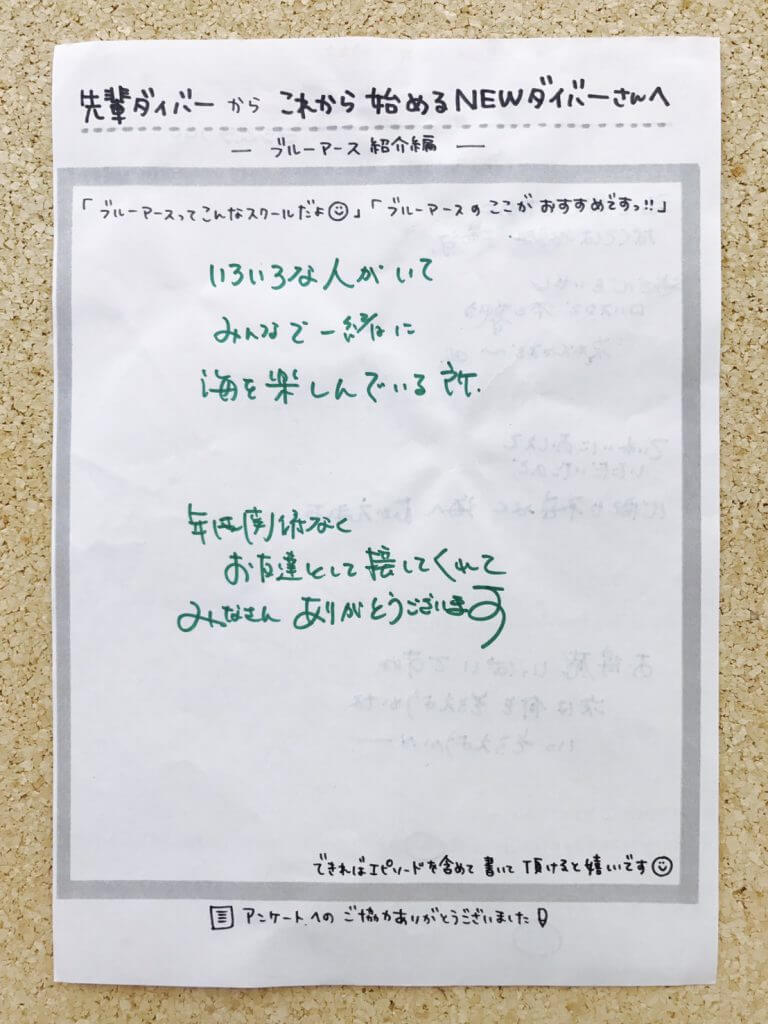 先輩ダイバーから これから始めるNEWダイバーさんへ
ー ブルーアース紹介編 ー
「ブルーアースってこんなスクールだよ☺」「ブルーアースのここがおすすめですっ!!」
いろいろな人がいて
みんなで一緒に
海を楽しんでいる所.
年は関係なく
お友達として接してくれて
みんなさん ありがとうございます
できればエピソードを含めて書いて頂けると嬉しいです☺
アンケートへのご協力ありがとうございました